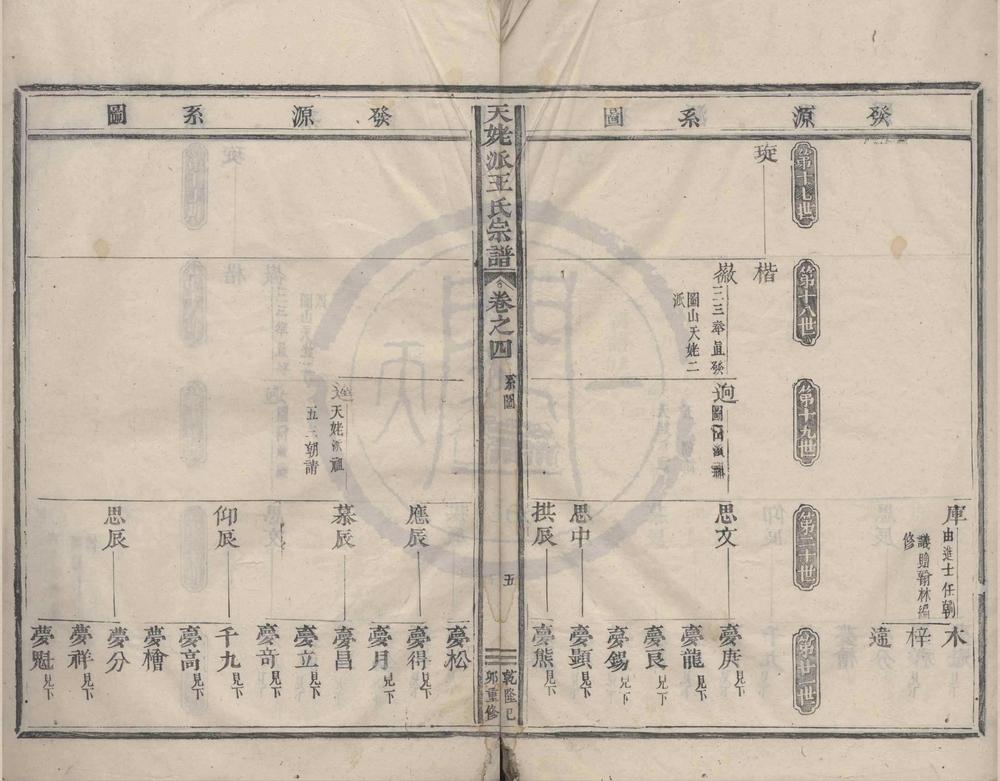 發源系圖
庫
由進士任朝
議贈翰林編
修
木
梓
違
第十七世
第十八世
第十九世
第二十世
第廿一世
琁
楷
徽
三三奉直發
圖山天姥二
派
迥
圖山派祖
思文
思中
拱辰
夢庚見下
夢龍見下
夢良見下
夢錫見下
夢顕見下
夢熊見下
天姥派王氏宗譜
卷之四
系圖
五
乾隆己
卯重修
發源系圖
天姥派祖
五二朝請
應辰
慕辰
仰辰
思辰
夢松見下
夢得見下
夢月見下
夢昌見下
夢立見下
夢奇見下
千九見下
夢高見下
夢檜
夢分
夢祥見下
夢魁見下